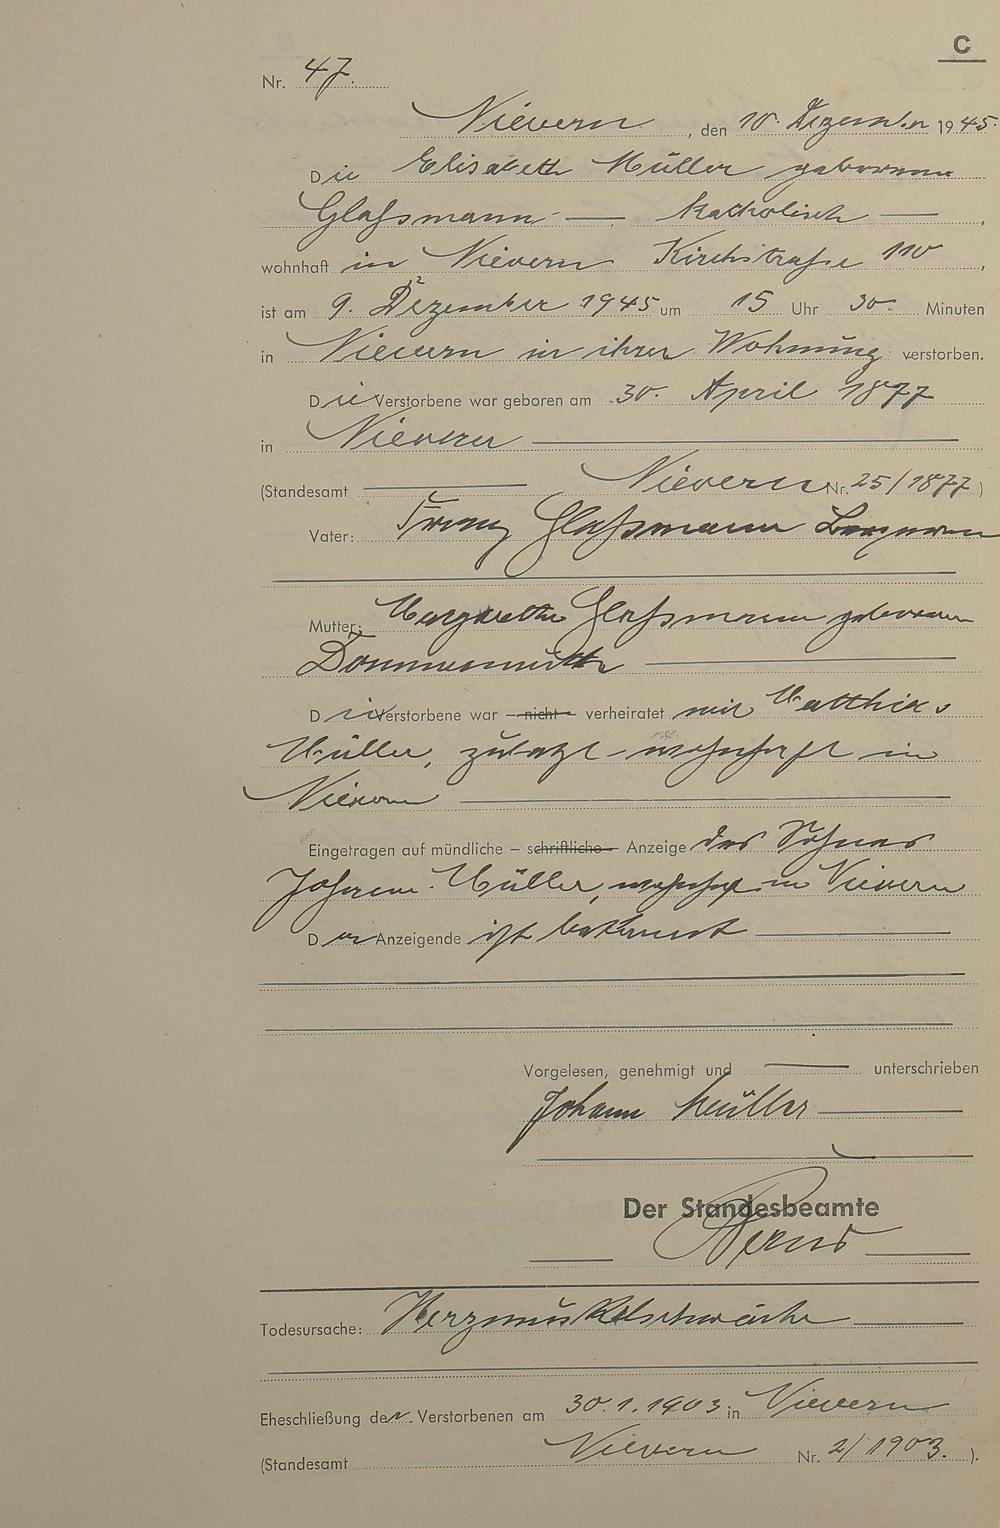 C
Nr. 47.
Nievern, den 10. Dezember 1945.
Die Elisabeth Müller geborene
Glaßmann — katholisch —,
wohnhaft in Nievern Kirchstraße 110,
ist am 9. Dezember 1945 um 15 Uhr 30 Minuten
in Nievern in ihrer Wohnung verstorben.
Die Verstorbene war geboren am 30. April 1877
in Nievern
(Standesamt Nievern Nr. 25/1877)
Vater: Franz Glaßmann
Mutter: Margarethe Glaßmann geborene
Dommermuth
Die Verstorbene war – nicht – verheiratet mit Matthias
Müller, zuletzt wohnhaft in
Nievern
Eingetragen auf mündliche – schriftliche – Anzeige des Sohnes
Johann Müller, wohnhaft in Nievern
Der Anzeigende ist bekannt
Vorgelesen, genehmigt und unterschrieben
Johann Müller
Der Standesbeamte
Todesursache: Herzmuskelschwäche
Eheschließung der Verstorbenen am 30.1.1903 in Nievern
(Standesamt Nievern Nr. 2/1903.).